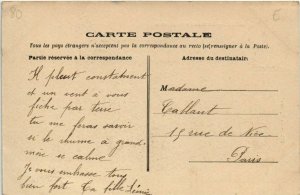 80
E
CARTE POSTALE
Tous les pays étrangers n'acceptent pas la correspondance au recto (se renseigner à la Poste).
Partie réservée à la correspondance
Adresse du destinataire
Il pleut constatment
et un vent à vous
ficher par terre
tu me feras savoir
si le rhume à grand-
mère se calme
Je vous embrasse tous
bien fort Ta fille
Madame
Tallaut
15 rue de
Paris